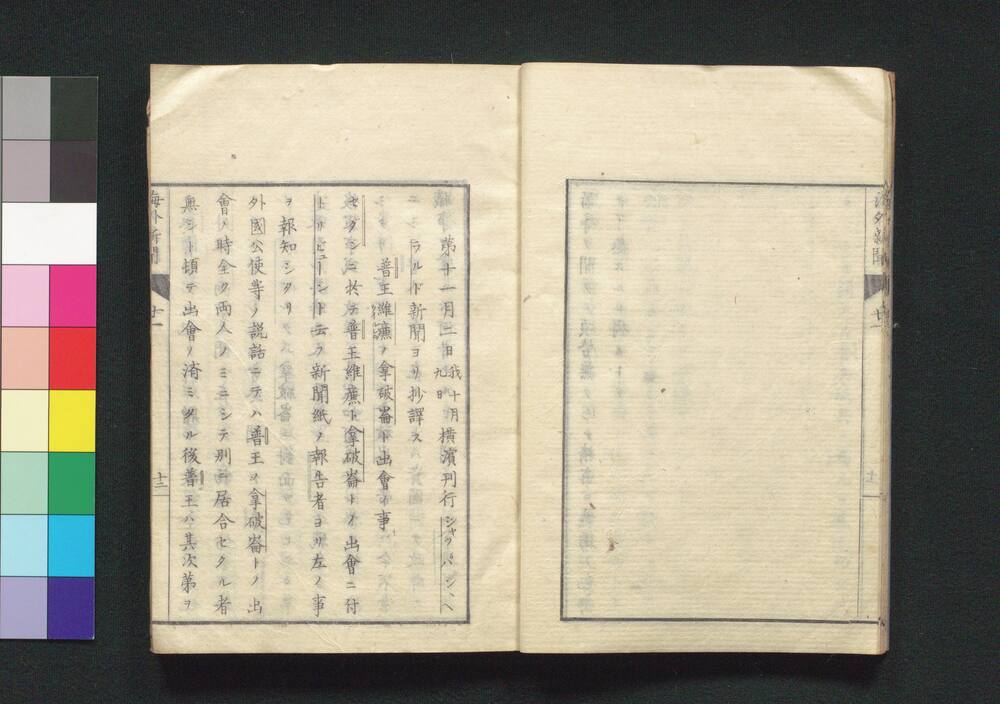 海外新聞
第十一月二日 我十月九日 横濱刊行 ジャッパン、ヘ
ラルド新聞ヨリ抄譯ス
普王維廉ノ拿破崙ト出會ノ事
セダンニ於テ普王維廉ト拿破崙トノ出會ニ付
ト云フ新聞紙ノ報告者ヨリ左ノ事
ヲ報知シタリ
外國公使等ノ説話ニテハ普王ノ拿破崙トノ出
會ノ時全ク両人ノミニシテ別ニ居合セタル者
無シト頓テ出會ノ濟ミタル後普王ハ其次第ヲ
海外新聞
十一
十三